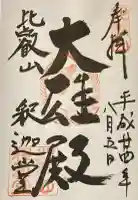 奉拝
平成廿四年
八月五日
大雄殿
比叡山
釈迦堂